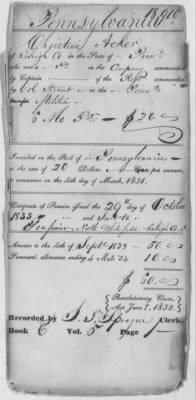 18,900
Pennsylvania
Christian Acker
of Lehigh Co. in the State of Penna
who was a in the Company commanded
by Captain of the Regt commanded
by Col in the Penna
Militia
6 Mo $20.
Inscribed on the Roll of Pennsylvania
at the rate of 20 Dollars Cents per annum,
to commence on the 4th day of March, 1831.
Certificate of Pension issued the 29th day of October
1833 and
North Whitehall Lehigh Co.
Arrears to the 4th of Sept 1833 50.00
Semi-anl. allowance ending 4 Mch '34 10.00
$60.00
Revolutionary Claim,
Act June 7, 1832.
Recorded by Clerk,
Book Vol. Page